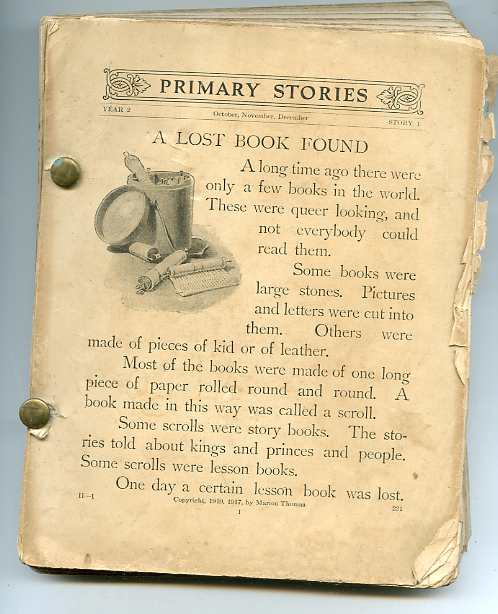 PRIMARY STORIES
YEAR 2
October, November, December
STORY 1
A LOST BOOK FOUND
A long time ago there were
only a few books in the world.
These were queer looking, and
not everybody could
read them.
Some books were
large stones. Pictures
and letters were cut into
them. Others were
made of pieces of kid or of leather.
Most of the books were made of one long
piece of paper rolled round and round. A
book made in this way was called a scroll.
Some scrolls were story books. The sto-
ries told about kings and princes and people.
Some scrolls were lesson books.
One day a certain lesson book was lost.
II—1
Copyright, 1910, 1917, by Marion Thomas
221
1